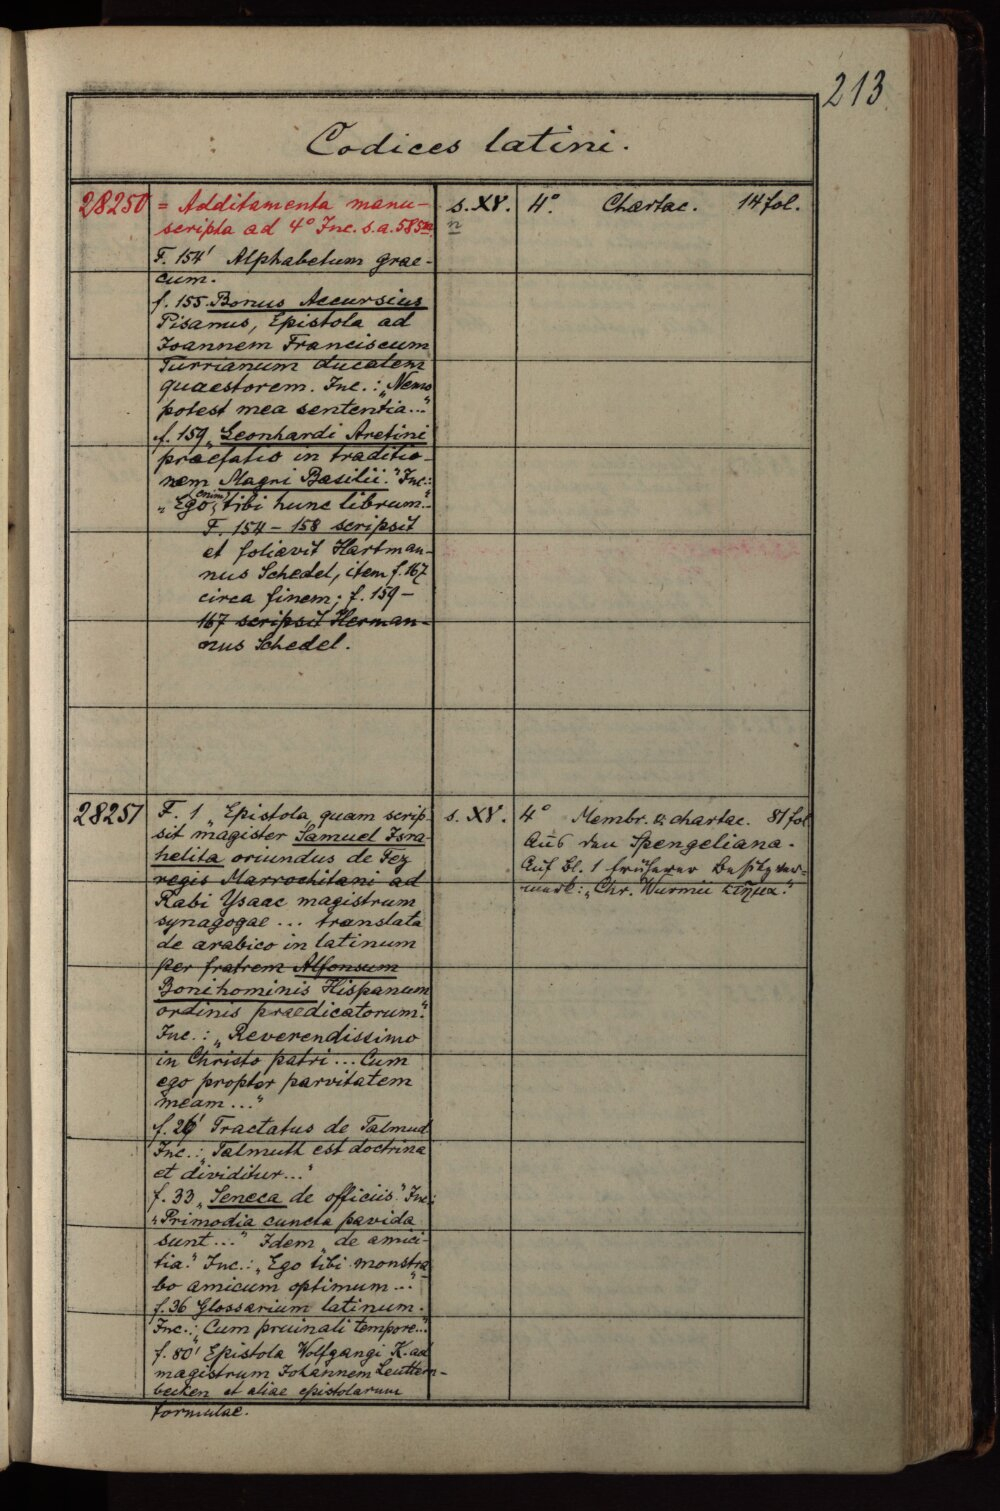 213
Codices latini.
28250 = Additamenta manu- s. XV. 4°. Chartac. 14 fol.
scripta ad 4° Inc. s. a. 585m. n
F. 154' Alphabetum grae-
cum.
f. 155. Bonus Accursius
Pisanus, Epistola ad
Joannem Franciscum
Turrianum ducalem
quaestorem. Inc.: „Nemo
potest mea sententia..."
f. 159 „Leonhardi Aretini
praefatio in traditio-
nem Magni Basilii." Inc.:
„Ego (enim) tibi hunc librum.."
F. 154 - 158 scripsit
et foliavit Hartman-
nus Schedel, item f. 167
circa finem; f. 159 -
167 scripsit Herman-
nus Schedel.
28251 F. 1 „Epistola, quam scrip- s. XV. 4° Membr. & chartac. 81 fol
sit magister Samuel Isra- Aus den Spengeliana.
helita oriundus de Fez Auf Bl. 1 früherer Besitzver-
regis Marrochitani ad merk: „Chr. Wurmii κτῆμα."
Rabi Ysaac magistrum
synagogae ... translata
de arabico in latinum
per fratrem Alfonsum
Bonihominis Hispanum
ordinis praedicatorum."
Inc.: „Reverendissimo
in Christo patri ... Cum
ego propter parvitatem
meam ..."
f. 26' Tractatus de Talmud
Inc.: „Talmutt est doctrina
et dividitur..."
f. 33 „Seneca de officiis." Inc.:
„Primodia cuncta pavida
sunt ..." Idem „de amici-
tia." Inc.: „Ego tibi monstra-
bo amicum optimum ..."
f. 36 Glossarium latinum.
Inc.: „Cum pruinali tempore.."
f. 80' Epistola Wolfgangi K. ad
magistrum Johannem Leuttern-
becken et aliae epistolarum
formulae.